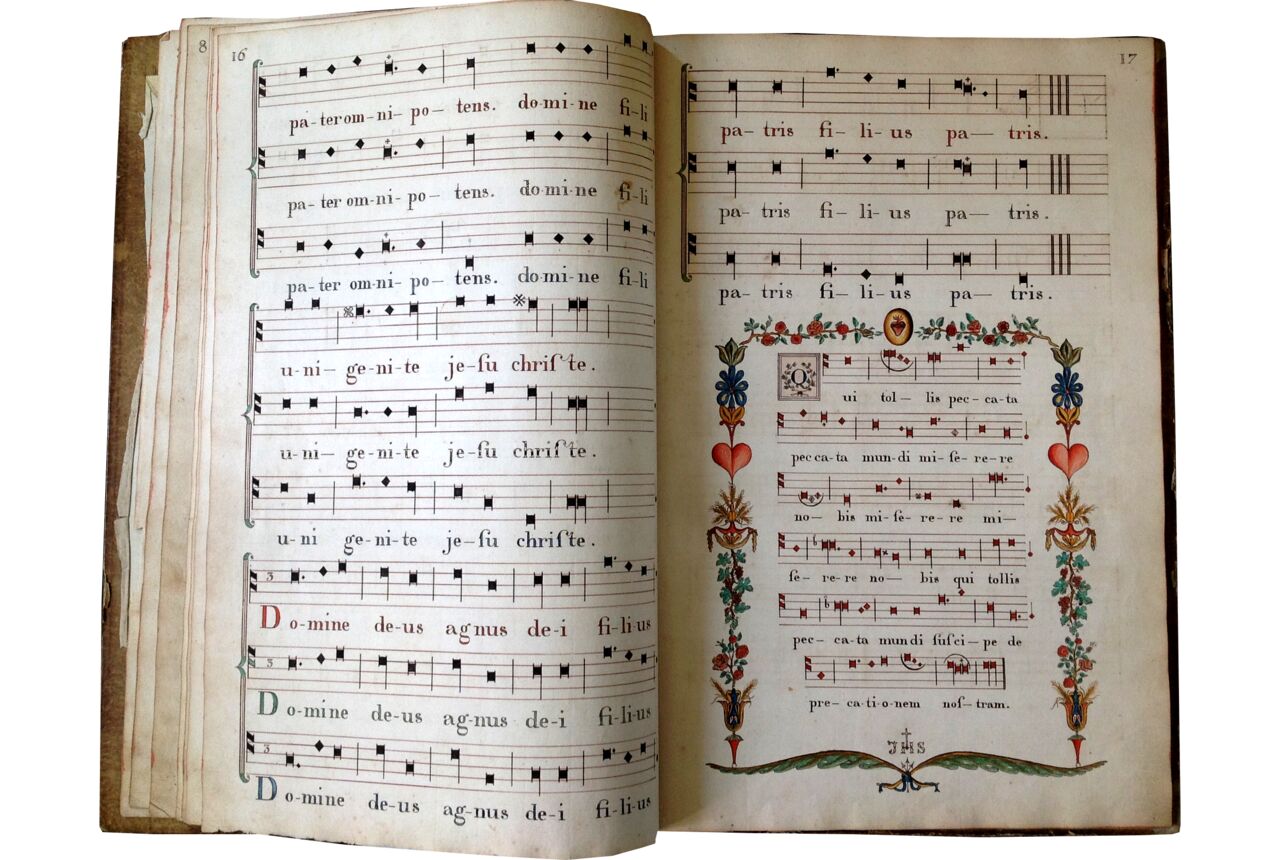 8
16
pa-ter om-ni- po- tens. do-mi-ne fi-li
pa- ter om-ni- po- tens. do-mi-ne fi-li
pa- ter om-ni- po- tens. do-mi-ne fi-li
u-ni- ge-ni-te je-ſu chriſte.
u-ni- ge-ni-te je-ſu chriſte.
u-ni ge-ni-te je-ſu chriſte.
3
Do-mine de-us agnus de-i fi-li-us
3
Do-mine de-us ag-nus de-i fi-li-us
3
Do-mine de-us ag-nus de-i fi-li-us
17
pa- tris fi- li- us pa— tris.
pa- tris fi- li- us pa— tris.
pa- tris fi- li- us pa— tris.
Qui tol— lis pec-ca-ta
pec ca-ta mun-di mi-ſe-re-re
no— bis mi-ſe-re-re mi—
ſe- re-re no— bis qui tollis
pec- ca-ta mundi ſuſci-pe de
pre-ca-ti-o-nem noſ-tram.
JHS